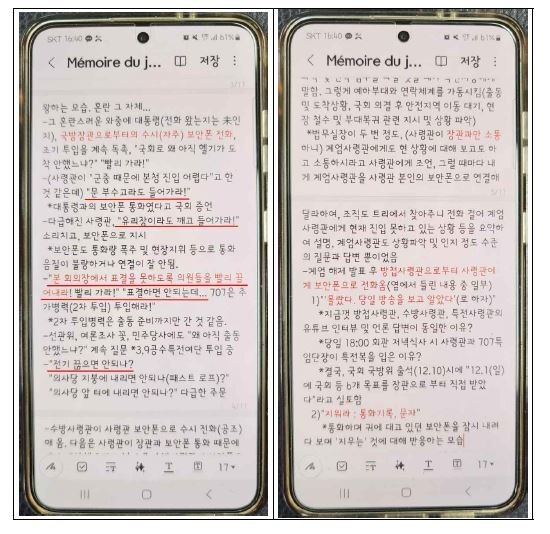 SKT 16:40
61%
Mémoire du j...
저장
3/11
왕하는 모습. 혼란 그 자체...
-그 혼란스러운 와중에 대통령(전화 왔는지는 未인
지), 국방장관으로부터의 수시(자주) 보안폰 전화,
조기 투입을 계속 독촉, '국회로 왜 아직 헬기가 도
착 안했느냐?" "빨리 가라!"
-(사령관이 "군중 때문에 본청 진입 어렵다"고 한
것 같은데) "문 부수고라도 들어가라!"
*대통령과의 보안폰 통화였다고 국회 증언
-다급해진 사령관, "유리창이라도 깨고 들어가라!"
소리치고, 보안폰으로 지시
*보안폰도 통화량 폭주 및 현장지휘 등으로 통화
음질이 불량하거나 연결이 잘 안됨.
-"본 회의장에서 표결을 못하도록 의원들을 빨리 끌
어내라! 빨리 가라!" "표결하면 안되는데... 707은 추
가병력(2차 투입) 투입해라!"
*2차 투입병력은 출동 준비까지만 간 것 같음.
-선관위, 여론조사 꽃, 민주당사에도 "왜 아직 출동
안했느냐?" 계속 질문 *3,9공수특전여단 투입 중
-"전기 끊으면 안되나?
"의사당 지붕에 내리면 안되나(패스트 로프)?"
"의사당 앞 터에 내리면 안되나?" 다급한 주문
4/11
-수방사령관이 사령관 보안폰으로 수시 전화(공조)
해 옴. 다음은 사령관이 장관과 보안폰 통화 때문에
17
SKT 16:40
61%
Mémoire du j...
저장
말함. 그렇게 예하부대와 연락체계를 가동시킴(출동
및 도착상황, 국회 의결 후 안전지역 이동 대기, 현
장 철수 및 부대복귀 관련 지시 및 상황 파악)
*법무실장이 두 번 정도, (사령관이 장관과만 소통
하니) 계엄사령관에게도 현 상황에 대해 보고도 하
고 소통하시라고 사령관에게 조언, 그럴 때마다 내
게 계엄사령관을 사령관 본인의 보안폰으로 연결해
5/11
달라하여, 조직도 트리에서 찾아주니 전화 걸어 계엄
사령관에게 현재 진입 못하고 있는 상황 등을 요약하
여 설명. 계엄사령관도 상황파악 및 인지 정도 수준
의 질문과 답변 뿐이었음
-계엄 해제 발표 후 방첩사령관으로부터 사령관에
게 보안폰으로 전화옴(옆에서 들린 내용 중 일부)
1)"몰랐다. 당일 방송을 보고 알았다"(로 하자)"
*지금껏 방첩사령관, 수방사령관, 특전사령관의
유튜브 인터뷰 및 언론 답변이 동일한 이유?
*당일 18:00 회관 저녁식사 시 사령관과 707특
임단장이 특전복을 입은 이유?
*결국, 국회 국방위 출석(12.10)시에 "12.1(일)
에 국회 등 6개 목표를 장관으로부터 직접 받았
다"라고 실토함
2)"지워라 : 통화기록, 문자"
*통화하며 귀에 대고 있던 보안폰을 잠시 내려
다 보며 '지우는' 것에 대해 반응하는 모습
17